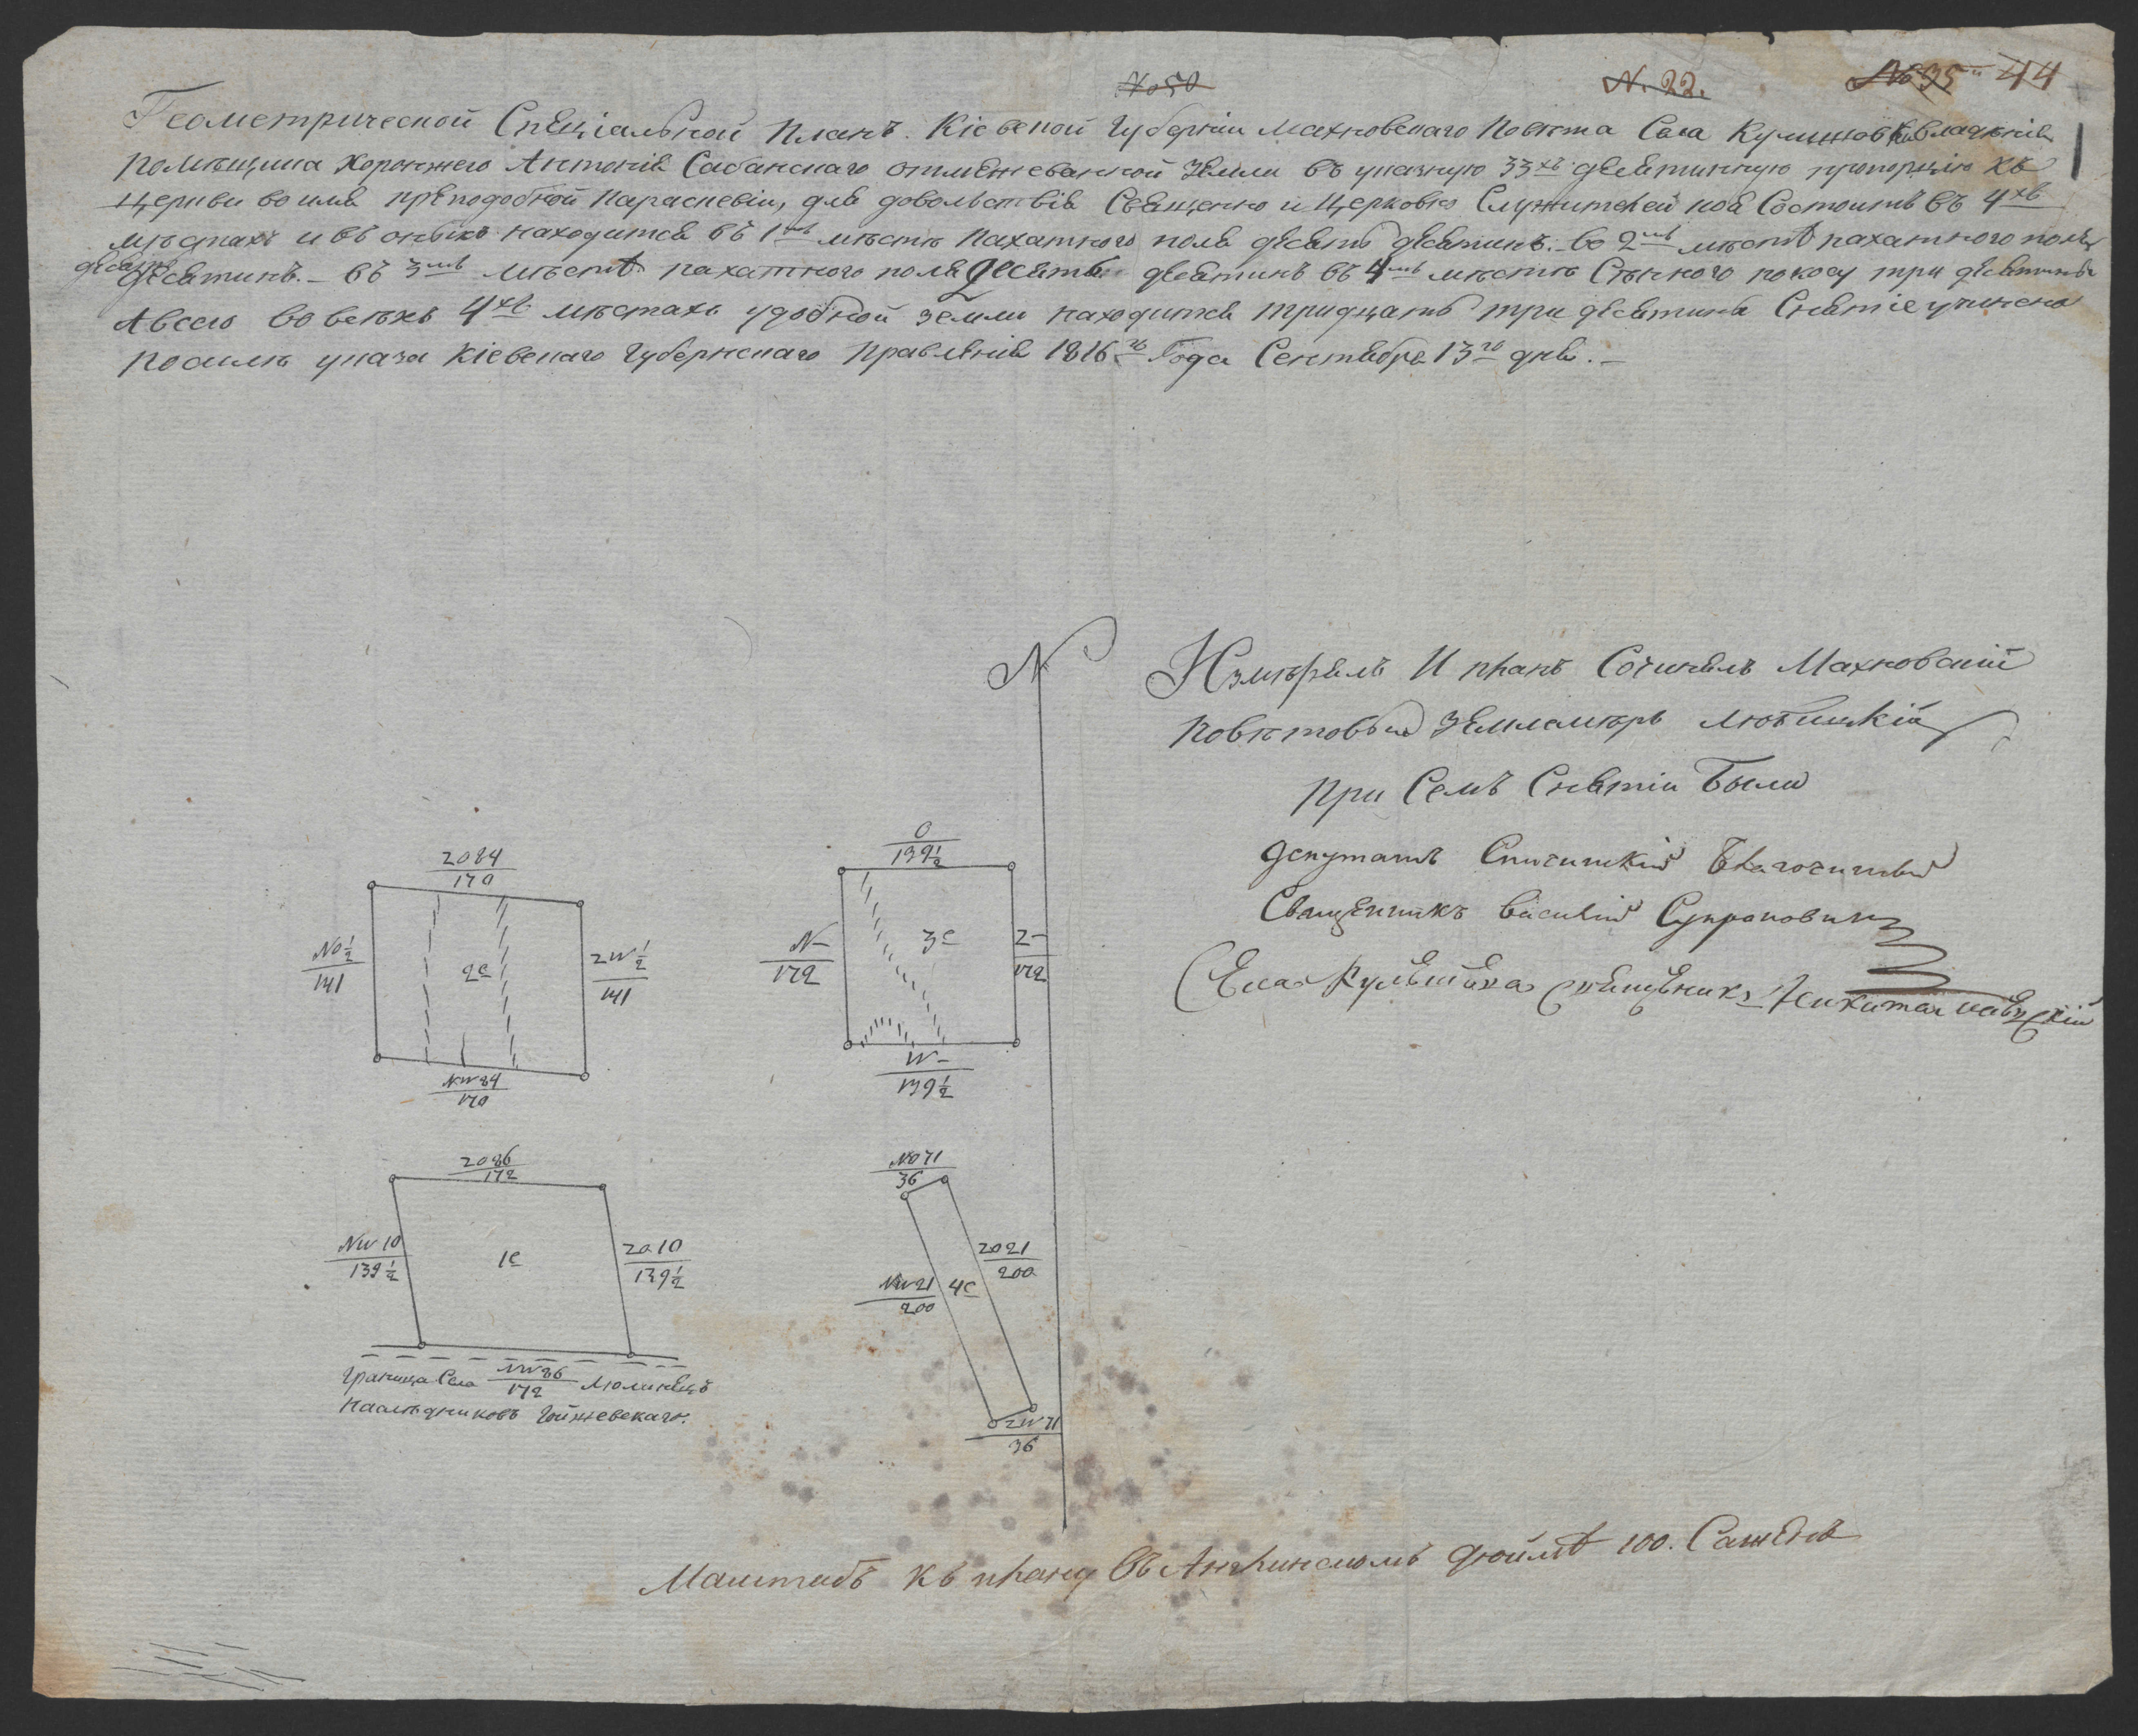 № 50
N. 22.
№ 35 44
Геометрической Спеціальной Планъ. Кіевской Губерніи Махновскаго Повѣта Села владѣнія
Помѣщика Хоронжего Антонія Сабанскаго отмежеванной Земли въ указную 33хъ десятинную пропорцію къ
Церкви во имя преподобной Параскевіи, для довольствія Священно и Церковно Служителей коя Состоитъ въ 4хъ
мѣстахъ и въ оныхъ находится въ 1мъ мѣстѣ Пахатного поля десять десятинъ. во 2мъ мѣстѣ пахатного поля
десять десятинъ. – въ 3мъ мѣстѣ пахатного поля десять десятинъ въ 4мъ мѣстѣ Сѣнного покосу три десятины
А всего во всѣхъ 4хъ мѣстахъ удобной земли находится тридцать три десятины Снятіе учинено
По силѣ указа Кіевскаго Губернскаго Правленія 1816го Года Сентября 13го дня. –
N
Измѣрялъ И планъ Сочинялъ Махновскій
Повѣтовый Землемѣръ
При Семъ Снятіи Были
Депутатъ Благочинный
Священникъ Василій Супроновичъ
Села Священникъ Никита
2O84
170
NO½
141
2е
2W½
141
NW84
170
O
139½
N–
172
3е
2–
172
W–
139½
2O86
172
NW10
139½
1е
2O10
139½
граница Села NW86
172
наслѣдниковъ
NO71
36
2O21
200
NW21
200
4е
2W71
36
Маштабъ къ плану въ Англинскомъ дюймѣ 100. Саженъ